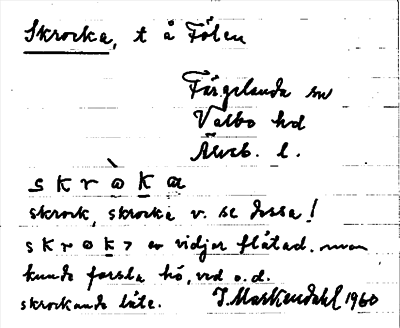 Skrocka, t å Fölen
Färgelanda sn
Valbo hd
Älvsb. l.
s k r ò k a
skrock, skrocka v. se dessa!
s k r o k > av vidjor flätad. man
kunde forsla hö, ved o.d.
skrockande läte. J. Markendahl 1960